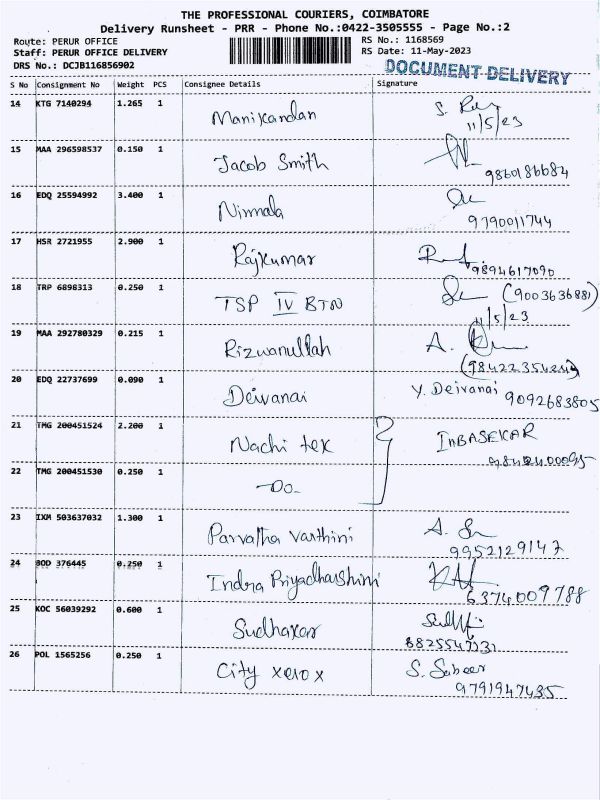 THE PROFESSIONAL COURIERS, COIMBATORE
Delivery Runsheet - PRR - Phone No.:0422-3505555 - Page No.:2
Route: PERUR OFFICE RS No.: 1168569
Staff: PERUR OFFICE DELIVERY RS Date: 11-May-2023
DRS No.: DCJB116856902 DOCUMENT DELIVERY
S No Consignment No Weight PCS Consignee Details Signature
14 KTG 7140294 1.265 1 Manikandan
11/5/23
15 MAA 296598537 0.150 1 Jacob Smith
16 EDQ 25594992 3.400 1 Nirmala
9790011744
17 HSR 2721955 2.900 1 Rajkumar
9894617090
18 TRP 6898313 0.250 1 TSP IV BTN (900363688)
11/5/23
19 MAA 292780329 0.215 1 Rizwanullah A.
20 EDQ 22737699 0.090 1 Deivanai Y. Deivanai
9092683805
21 TMG 200451524 2.200 1 Nachi tex INBASEKAR
22 TMG 200451530 0.250 1 -Do-
23 IXM 503637032 1.300 1 Parvatha Varthini A.
9952129147
24 BOD 376445 0.250 1 Indra Priyadharshini
6374009788
25 KOC 56039292 0.600 1 Sudhakar
26 POL 1565256 0.250 1 City xerox S. Sabeer
9791947435